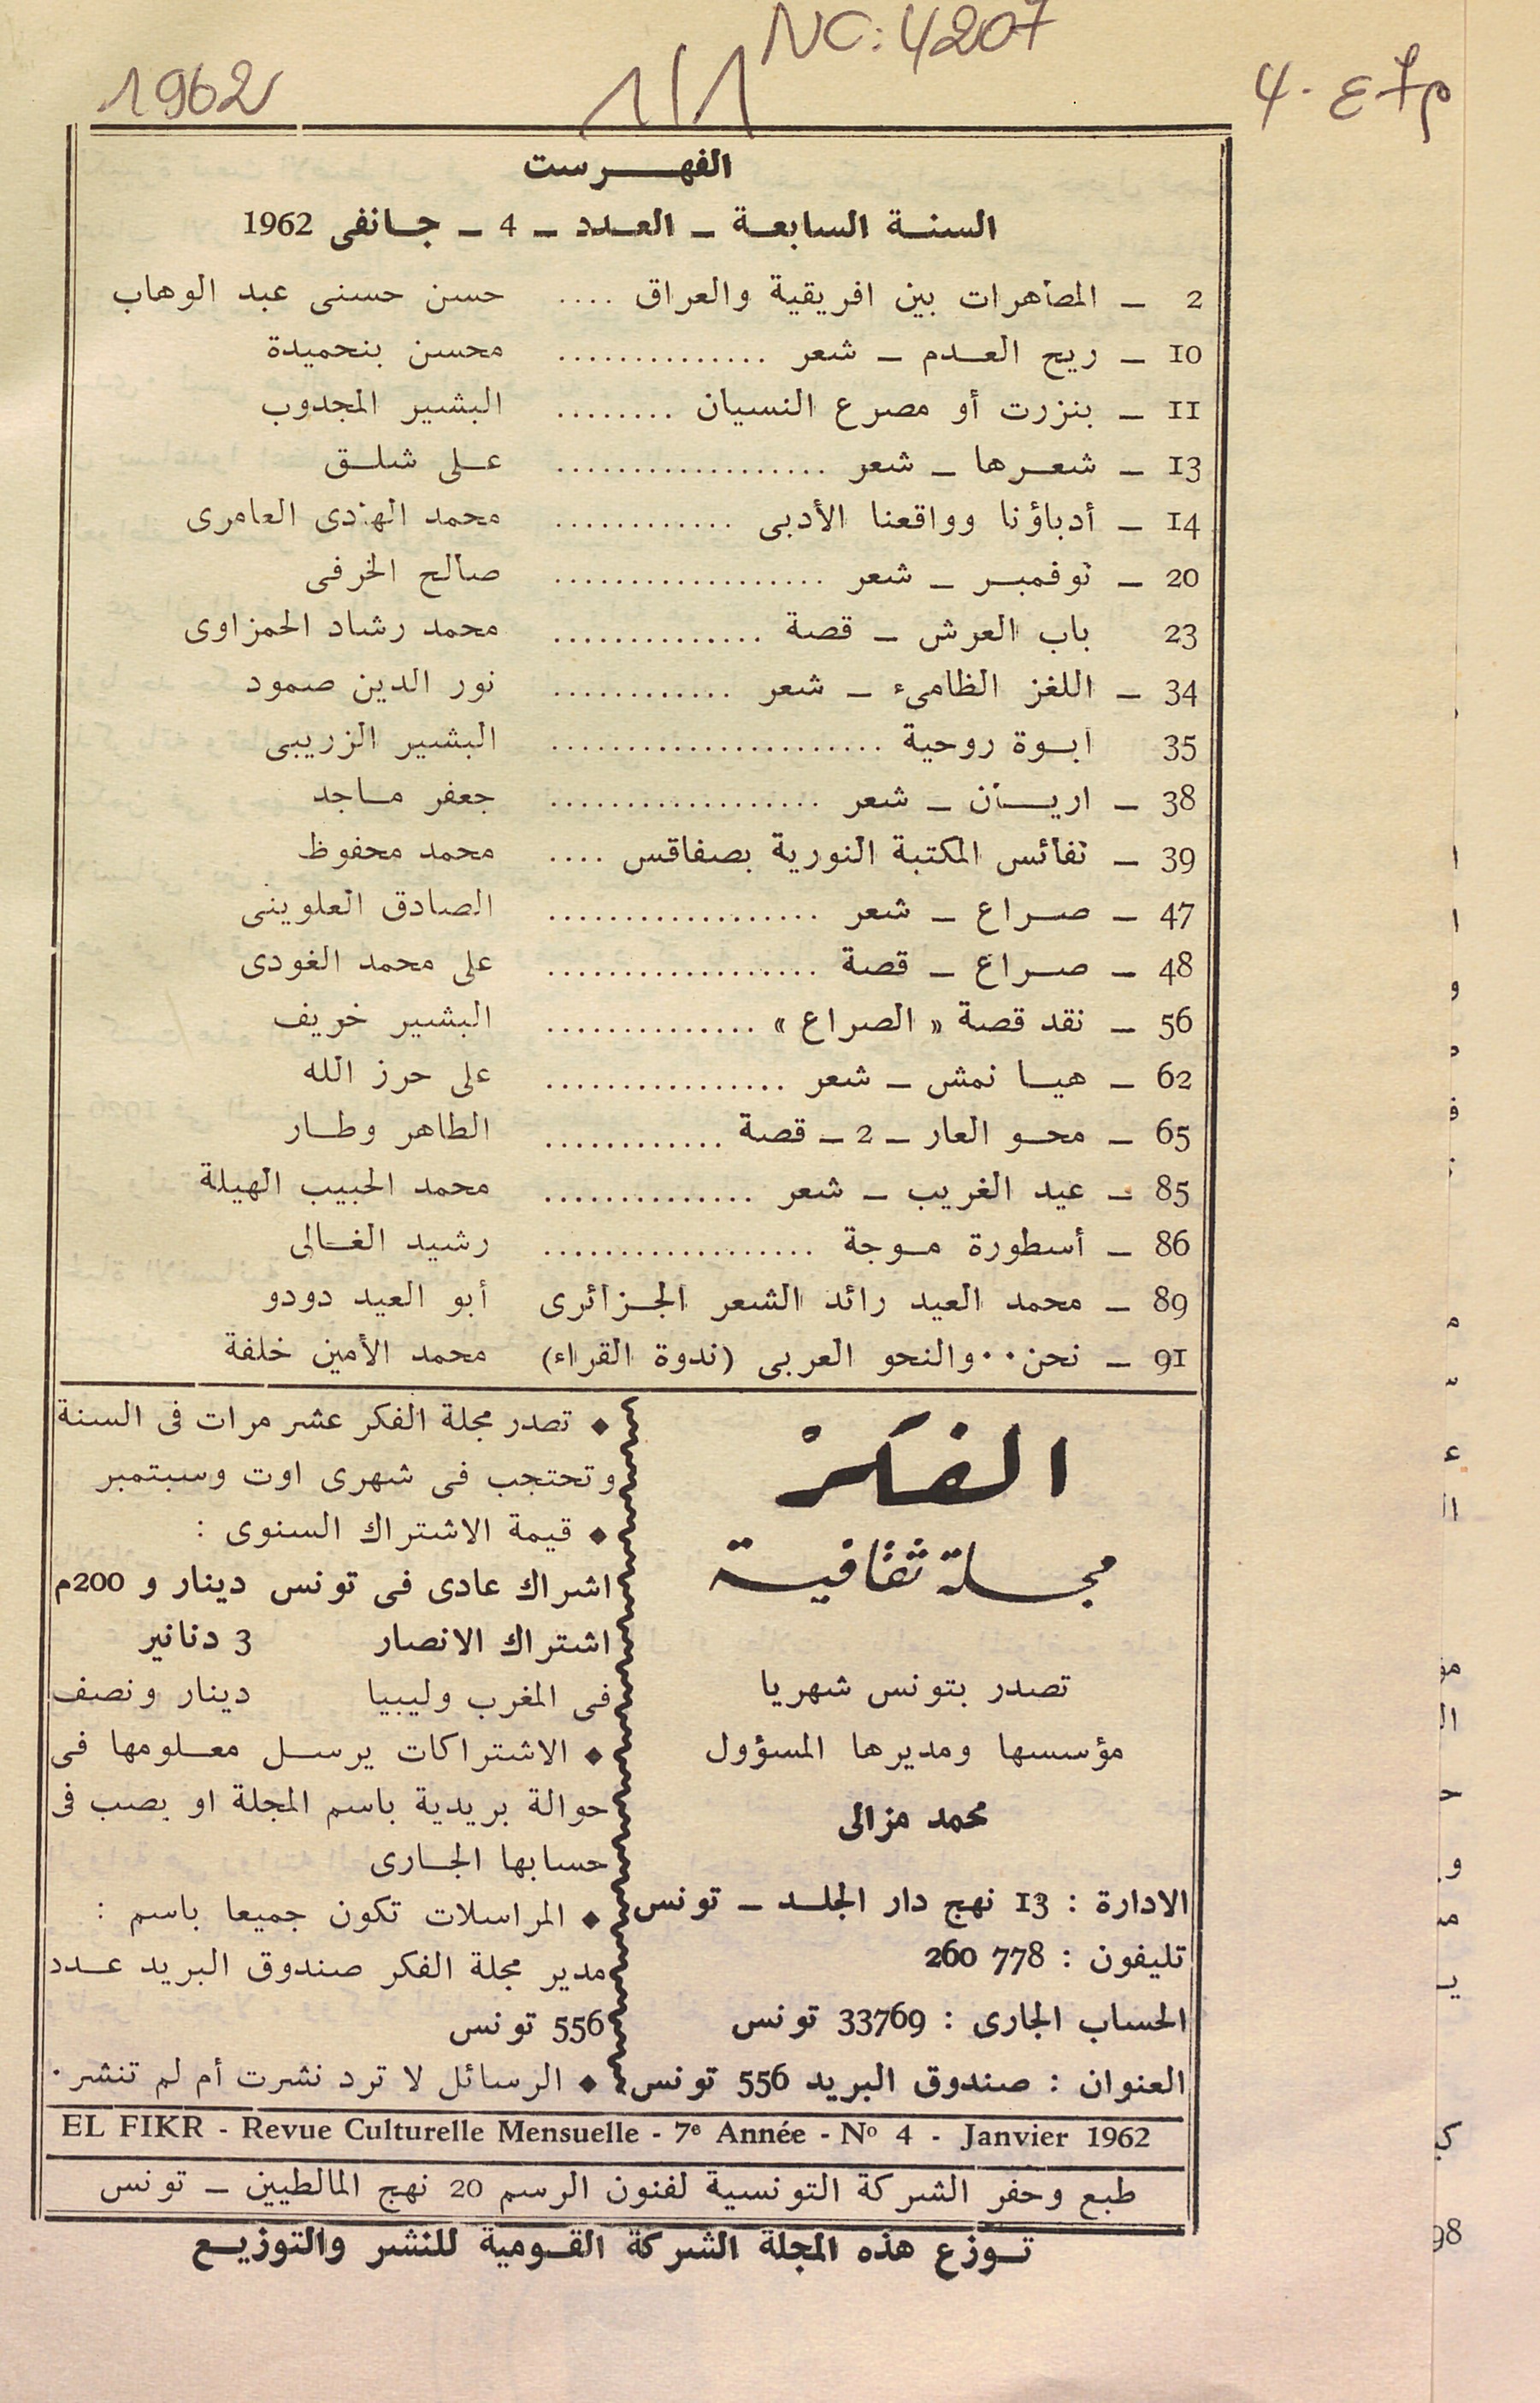 NC: 4207
1962
1/1
الفهرست
السنة السابعة ــ العدد ــ 4 ــ جانفى 1962
2 ــ المصاهرات بين افريقية والعراق .... حسن حسنى عبد الوهاب
10 ــ ريح العدم ــ شعر .............. محسن بنحميدة
11 ــ بنزرت أو مصرع النسيان ........ البشير المجدوب
13 ــ شعرها ــ شعر .................. على شلق
14 ــ أدباؤنا وواقعنا الأدبى ............ محمد الهادى العامرى
20 ــ نوفمبر ــ شعر .................. صالح الخرفى
23 باب العرش ــ قصة .............. محمد رشاد الحمزاوى
34 ــ اللغز الظامىء ــ شعر ............ نور الدين صمود
35 ابوة روحية ...................... البشير الزريبى
38 ــ اريان ــ شعر .................. جعفر ماجد
39 ــ نفائس المكتبة النورية بصفاقس .... محمد محفوظ
47 ــ صراع ــ شعر .................. الصادق العلوينى
48 ــ صراع ــ قصة .................. على محمد الغودى
56 ــ نقد قصة « الصراع » .............. البشير خريف
62 ــ هيا نمش ــ شعر ................ على حرز الله
65 ــ محو العار ــ 2 ــ قصة ............ الطاهر وطار
85 ــ عيد الغريب ــ شعر .............. محمد الحبيب الهيلة
86 ــ أسطورة موجة .................. رشيد الغالى
89 ــ محمد العيد رائد الشعر الجزائرى أبو العيد دودو
91 ــ نحن.. والنحو العربى (ندوة القراء) محمد الأمين خلفة
الفكر
مجلة ثقافية
تصدر بتونس شهريا
مؤسسها ومديرها المسؤول
محمد مزالى
الادارة : 13 نهج دار الجلد ــ تونس
تليفون : 778 260
الحساب الجارى : 33769 تونس
العنوان : صندوق البريد 556 تونس
♦ تصدر مجلة الفكر عشر مرات فى السنة
وتحتجب فى شهرى اوت وسبتمبر
♦ قيمة الاشتراك السنوى :
اشراك عادى فى تونس دينار و 200م
اشتراك الانصار 3 دنانير
فى المغرب وليبيا دينار ونصف
♦ الاشتراكات يرسل معلومها فى
حوالة بريدية باسم المجلة او بصب فى
حسابها الجارى
♦ المراسلات تكون جميعا باسم :
مدير مجلة الفكر صندوق البريد عدد
556 تونس
♦ الرسائل لا ترد نشرت أم لم تنشر.
EL FIKR - Revue Culturelle Mensuelle - 7e Année - No 4 - Janvier 1962
طبع وحفر الشركة التونسية لفنون الرسم 20 نهج المالطيين ــ تونس
توزع هذه المجلة الشركة القومية للنشر والتوزيع